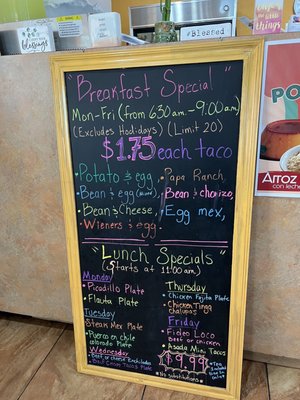 blessings
Blessed
"Breakfast Special"
Mon-Fri (from 630am - 9:00am)
(Excludes Hodidays) (Limit 20)
$1.75 each taco
• Potato & egg,
• Papa Ranch,
• Bean & egg
• Bean & chorizo,
• Bean & Cheese,
• Egg mex,
• Wieners & egg
"Lunch Specials"
(Starts at 11:00am)
Monday
• Picadillo Plate
• Flauta Plate
Tuesday
• Steak Mex Plate
• Puerco en chile
colorado Plate
Wednesday
• Beef or cheese Enchiladas
• Beef Crispy Tacos Plate
Thursday
• Chicken Fajita Plate
• Chicken Tinga
Chalupas
Friday
• Fideo Loco
Beef or chicken
• Asada Mini Tacos
$9.99
No substitutions
ARROZ
con leche